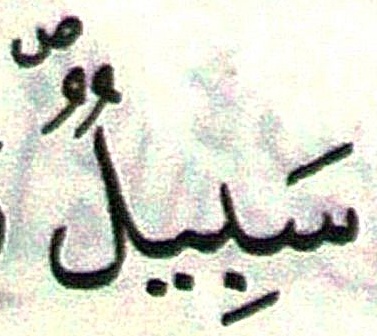 سَبِيلٌ ۖ ص